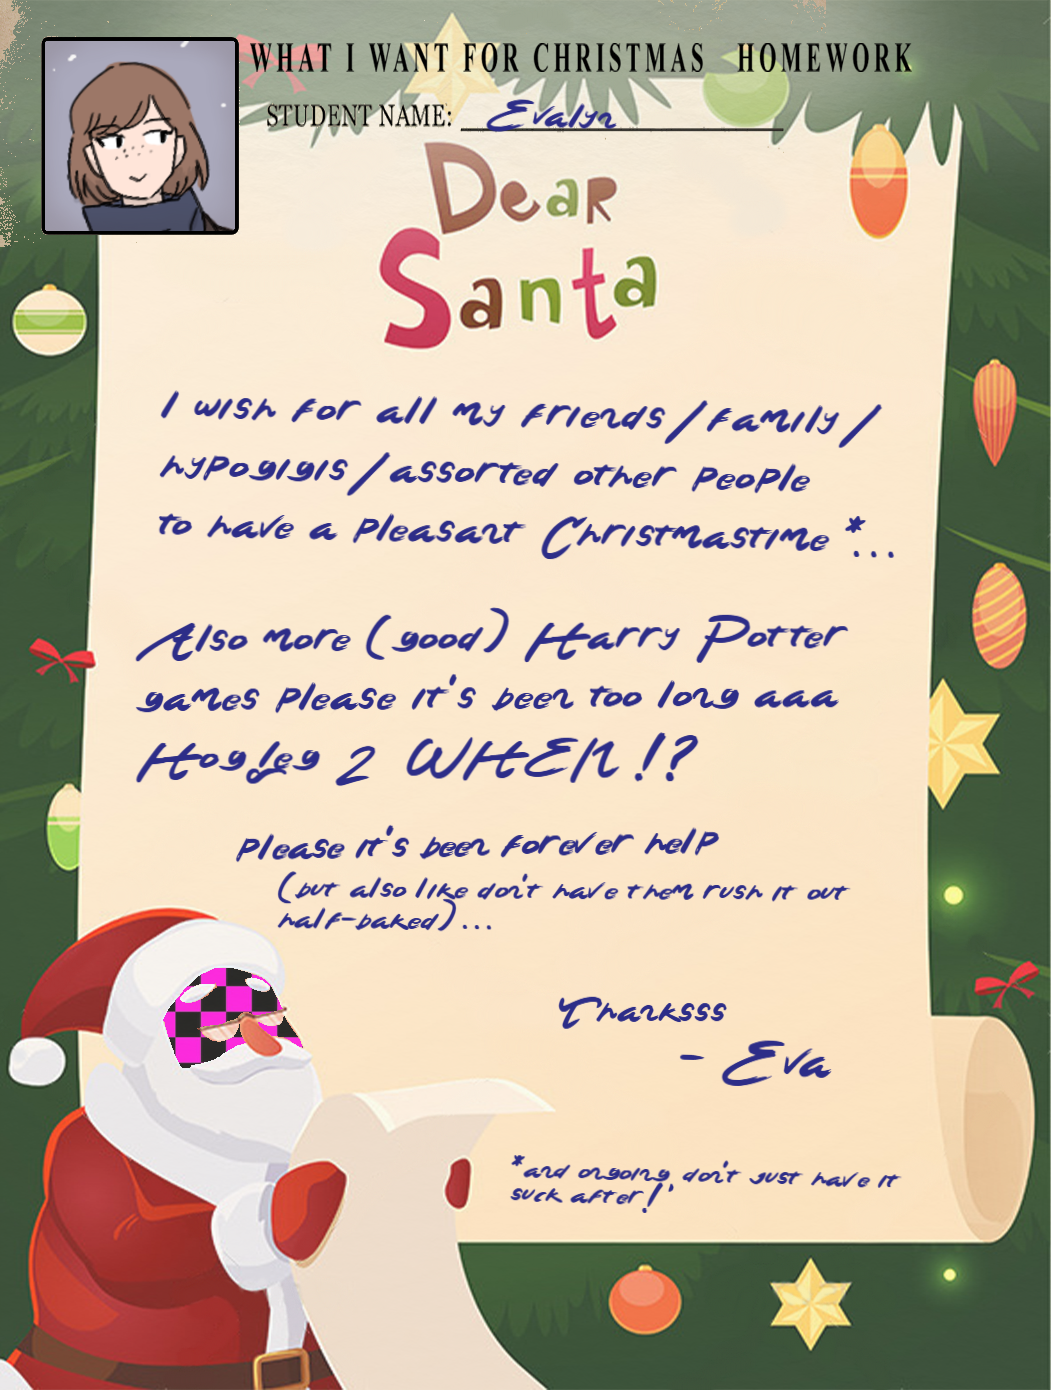 WHAT I WANT FOR CHRISTMAS HOMEWORK
STUDENT NAME: Evalyn
Dear
Santa
I wish for all my friends/family/
hypogigis/assorted other people
to have a pleasant Christmastime*...
Also more (good) Harry Potter
games please it's been too long aaa
Hogleg 2 WHEN!?
please it's been forever help
(but also like don't have them rush it out
half-baked)...
Thanksss
- Eva
*and ongoing, don't just have it
suck after!'